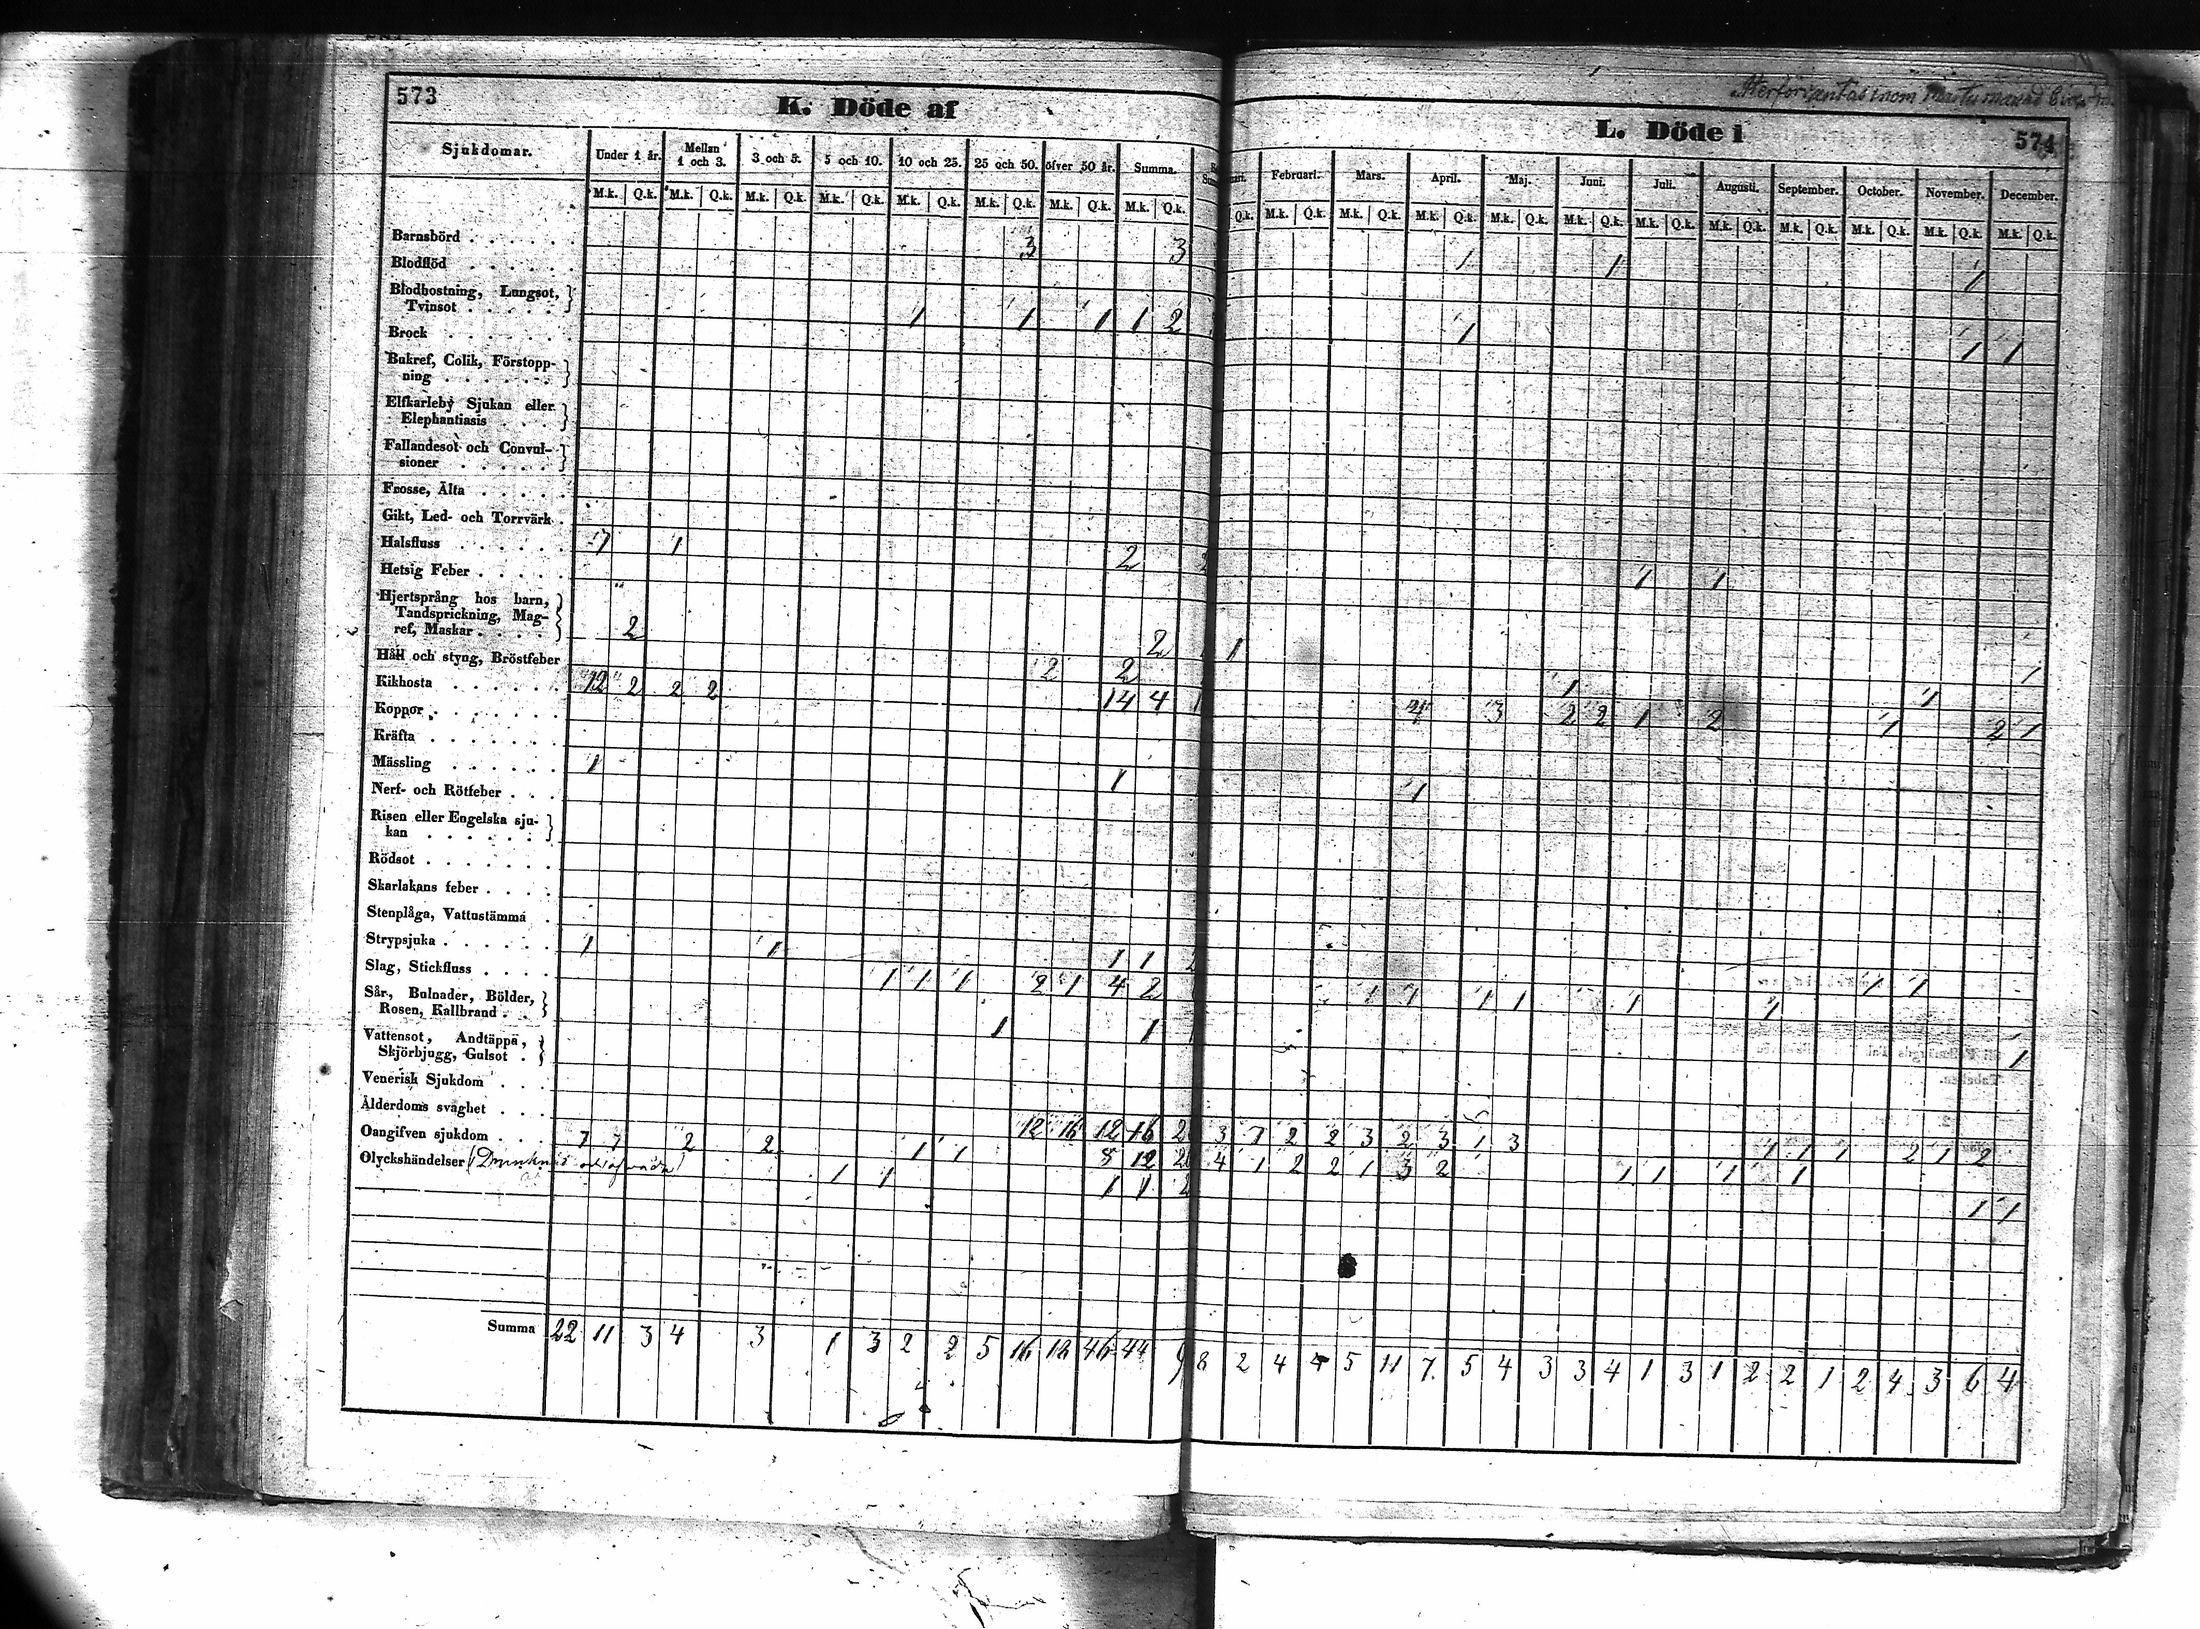 Återförväntas inom
573
K. Döde af
L. Döde i
574
Sjukdomar. Under 1 år. Mellan 1 och 3. 3 och 5. 5 och 10. 10 och 25. 25 och 50. öfver 50 år. Summa. Februari. Mars. April. Maj. Juni. Juli. Augusti. September. October. November. December.
M.k. Q.k. M.k. Q.k. M.k. Q.k. M.k. Q.k. M.k. Q.k. M.k. Q.k. M.k. Q.k. M.k. Q.k. Q.k. M.k. Q.k. M.k. Q.k. M.k. Q.k. M.k. Q.k. M.k. Q.k. M.k. Q.k. M.k. Q.k. M.k. Q.k. M.k. Q.k. M.k. Q.k. M.k. Q.k.
Barnsbörd 3 3 1 1 1
Blodflöd
Blodhostning, Lungsot,
Tvinsot 1 1 1 1 2 1 1 1
Brock
Bukref, Colik, Förstopp-
ning
Elfkarleby Sjukan eller
Elephantiasis
Fallandesot och Convul-
sioner
Frosse, Älta
Gikt, Led- och Torrvärk
Halsfluss 1 1 2 1 1
Hetsig Feber
Hjertsprång hos barn,
Tandsprickning, Mag-
ref, Maskar 2 2 1 1
Håll och styng, Bröstfeber 2 2 1 1
Kikhosta 12 2 2 2 14 4 4 3 2 2 1 2 1 2 1
Koppor
Kräfta
Mässling 1 1 1
Nerf- och Rötfeber
Risen eller Engelska sju-
kan
Rödsot
Skarlakans feber
Stenplåga, Vattustämma
Strypsjuka 1 1 1 1 1 1
Slag, Stickfluss 1 1 1 2 1 4 2 1 1 1 1 1 1
Sår, Bulnader, Bölder,
Rosen, Kallbrand 1 1 1
Vattensot, Andtäppa,
Skjörbjugg, Gulsot
Venerisk Sjukdom
Ålderdoms svaghet 12 16 12 16 2 3 7 2 2 3 2 3 1 3 1 1 1 2 1 2
Oangifven sjukdom 7 7 2 2 1 1 8 12 2 4 1 2 2 1 3 2 1 1 1 1
Olyckshändelser 1 1 1 1 2 1 1
Summa 22 11 3 4 3 1 3 2 2 5 16 18 46 44 9 8 2 4 4 5 11 7 5 4 3 3 4 1 3 1 2 2 1 2 4 3 6 4